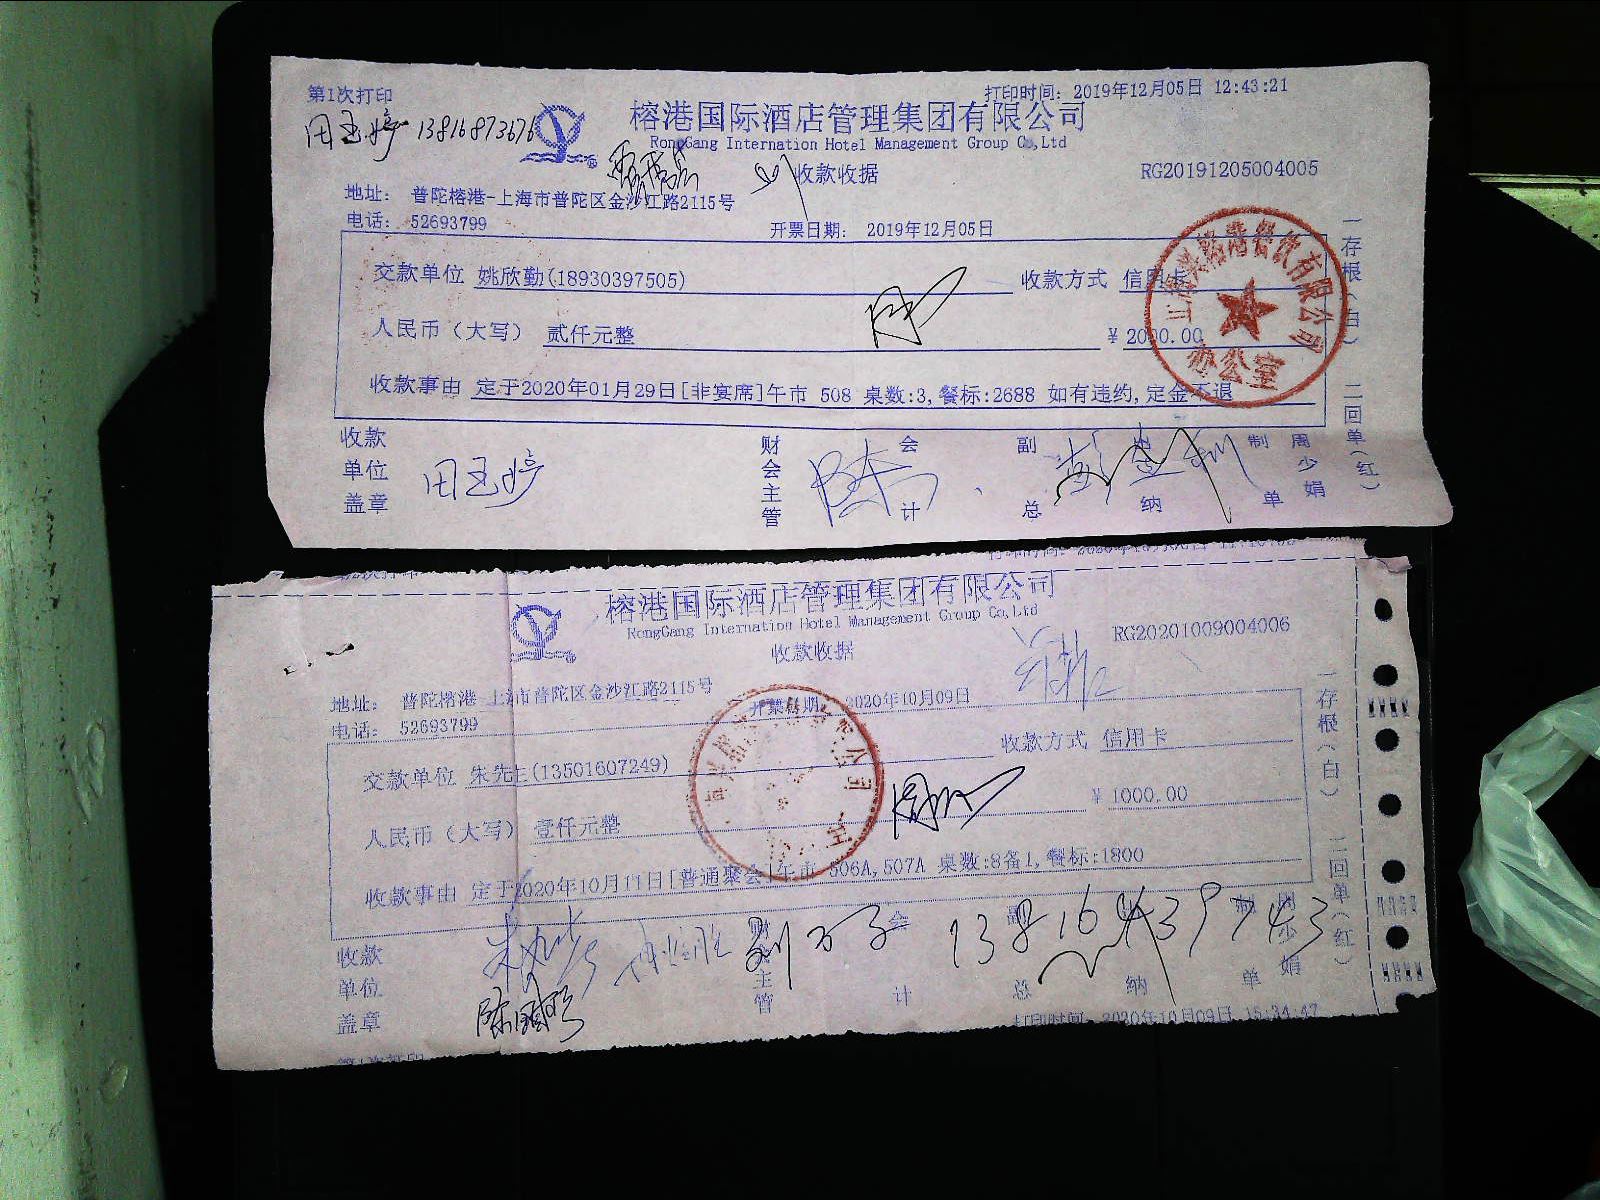 第1次打印
打印时间: 2019年12月05日 12:43:21
榕港国际酒店管理集团有限公司
13816873676
RongGang International Hotel Management Group Co,Ltd
收款收据
RG20191205004005
地址: 普陀榕港-上海市普陀区金沙江路2115号
电话: 52693799
开票日期: 2019年12月05日
交款单位 姚欣勤(18930397505)
收款方式 信用卡
人民币（大写） 贰仟元整
¥2000.00
收款事由 定于2020年01月29日[非宴席]午市 508 桌数:3,餐标:2688 如有违约,定金不退
餐饮有限公司
办公室
收款单位盖章
田玉婷
财会主管
会计
副总
出纳
制单
周少娟
一存根（白） 二回单（红）
榕港国际酒店管理集团有限公司
RongGang International Hotel Management Group Co,Ltd
收款收据
RG20201009004006
地址: 普陀榕港-上海市普陀区金沙江路2115号
电话: 52693799
开票日期: 2020年10月09日
交款单位 朱先生(13501607249)
收款方式 信用卡
人民币（大写） 壹仟元整
¥1000.00
收款事由 定于2020年10月11日[普通聚会]午市 506A,507A 桌数:8备1,餐标:1800
收款单位盖章
财会主管
会计
副总
纳
制单
周少娟
一存根（白） 二回单（红）
打印时间: 2020年10月09日 15:34:47